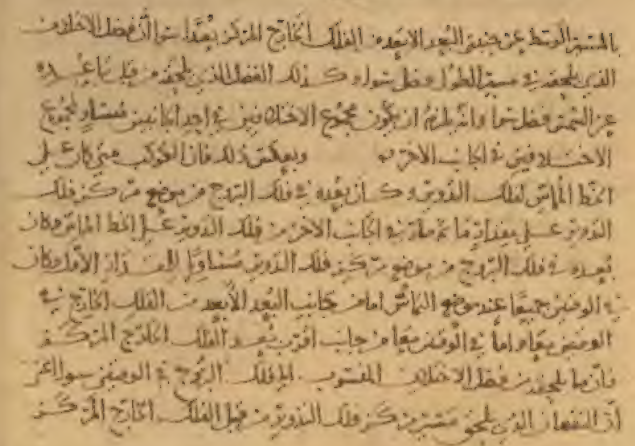 بالمسير الوسط عن جنبتي البعد الابعد من الفلك الخارج المركز بعدا سوا ان فضل الاختلاف
الذي يلحقه في مسير الطول فضل سوا وكذلك الفضل الذي يلحقه من قبل تباعده
عن الشمس فضل سوا وانه يلزم ان يكون مجموع الاختلافين في احد الجانبين مساو لمجموع
الاختلافين في الجانب الاخر وبعكس ذلك فان الكوكب متى كان على
الخط المماس لفلك التدوير وكان بعده في فلك البروج من موضع مركز فلك
التدوير على مقدار ما ثم صار في الجانب الاخر من فلك التدوير على الخط المماس وكان
بعده في فلك البروج من موضع مركز فلك التدوير مساويا للمقدار الاول وكان
في الوقتين جميعا عند موضع التماس اما من جانب البعد الابعد من الفلك الخارج في
الوقتين معا واما في الوقتين معا من جانب اقرب بعد الفلك الخارج المركز
فان ما يلحقه من فضل الاختلاف المنسوب الى فلك البروج في الوقتين سوا اعني
ان النقصان الذي يلحق مسير مركز فلك التدوير من قبل الفلك الخارج المركز